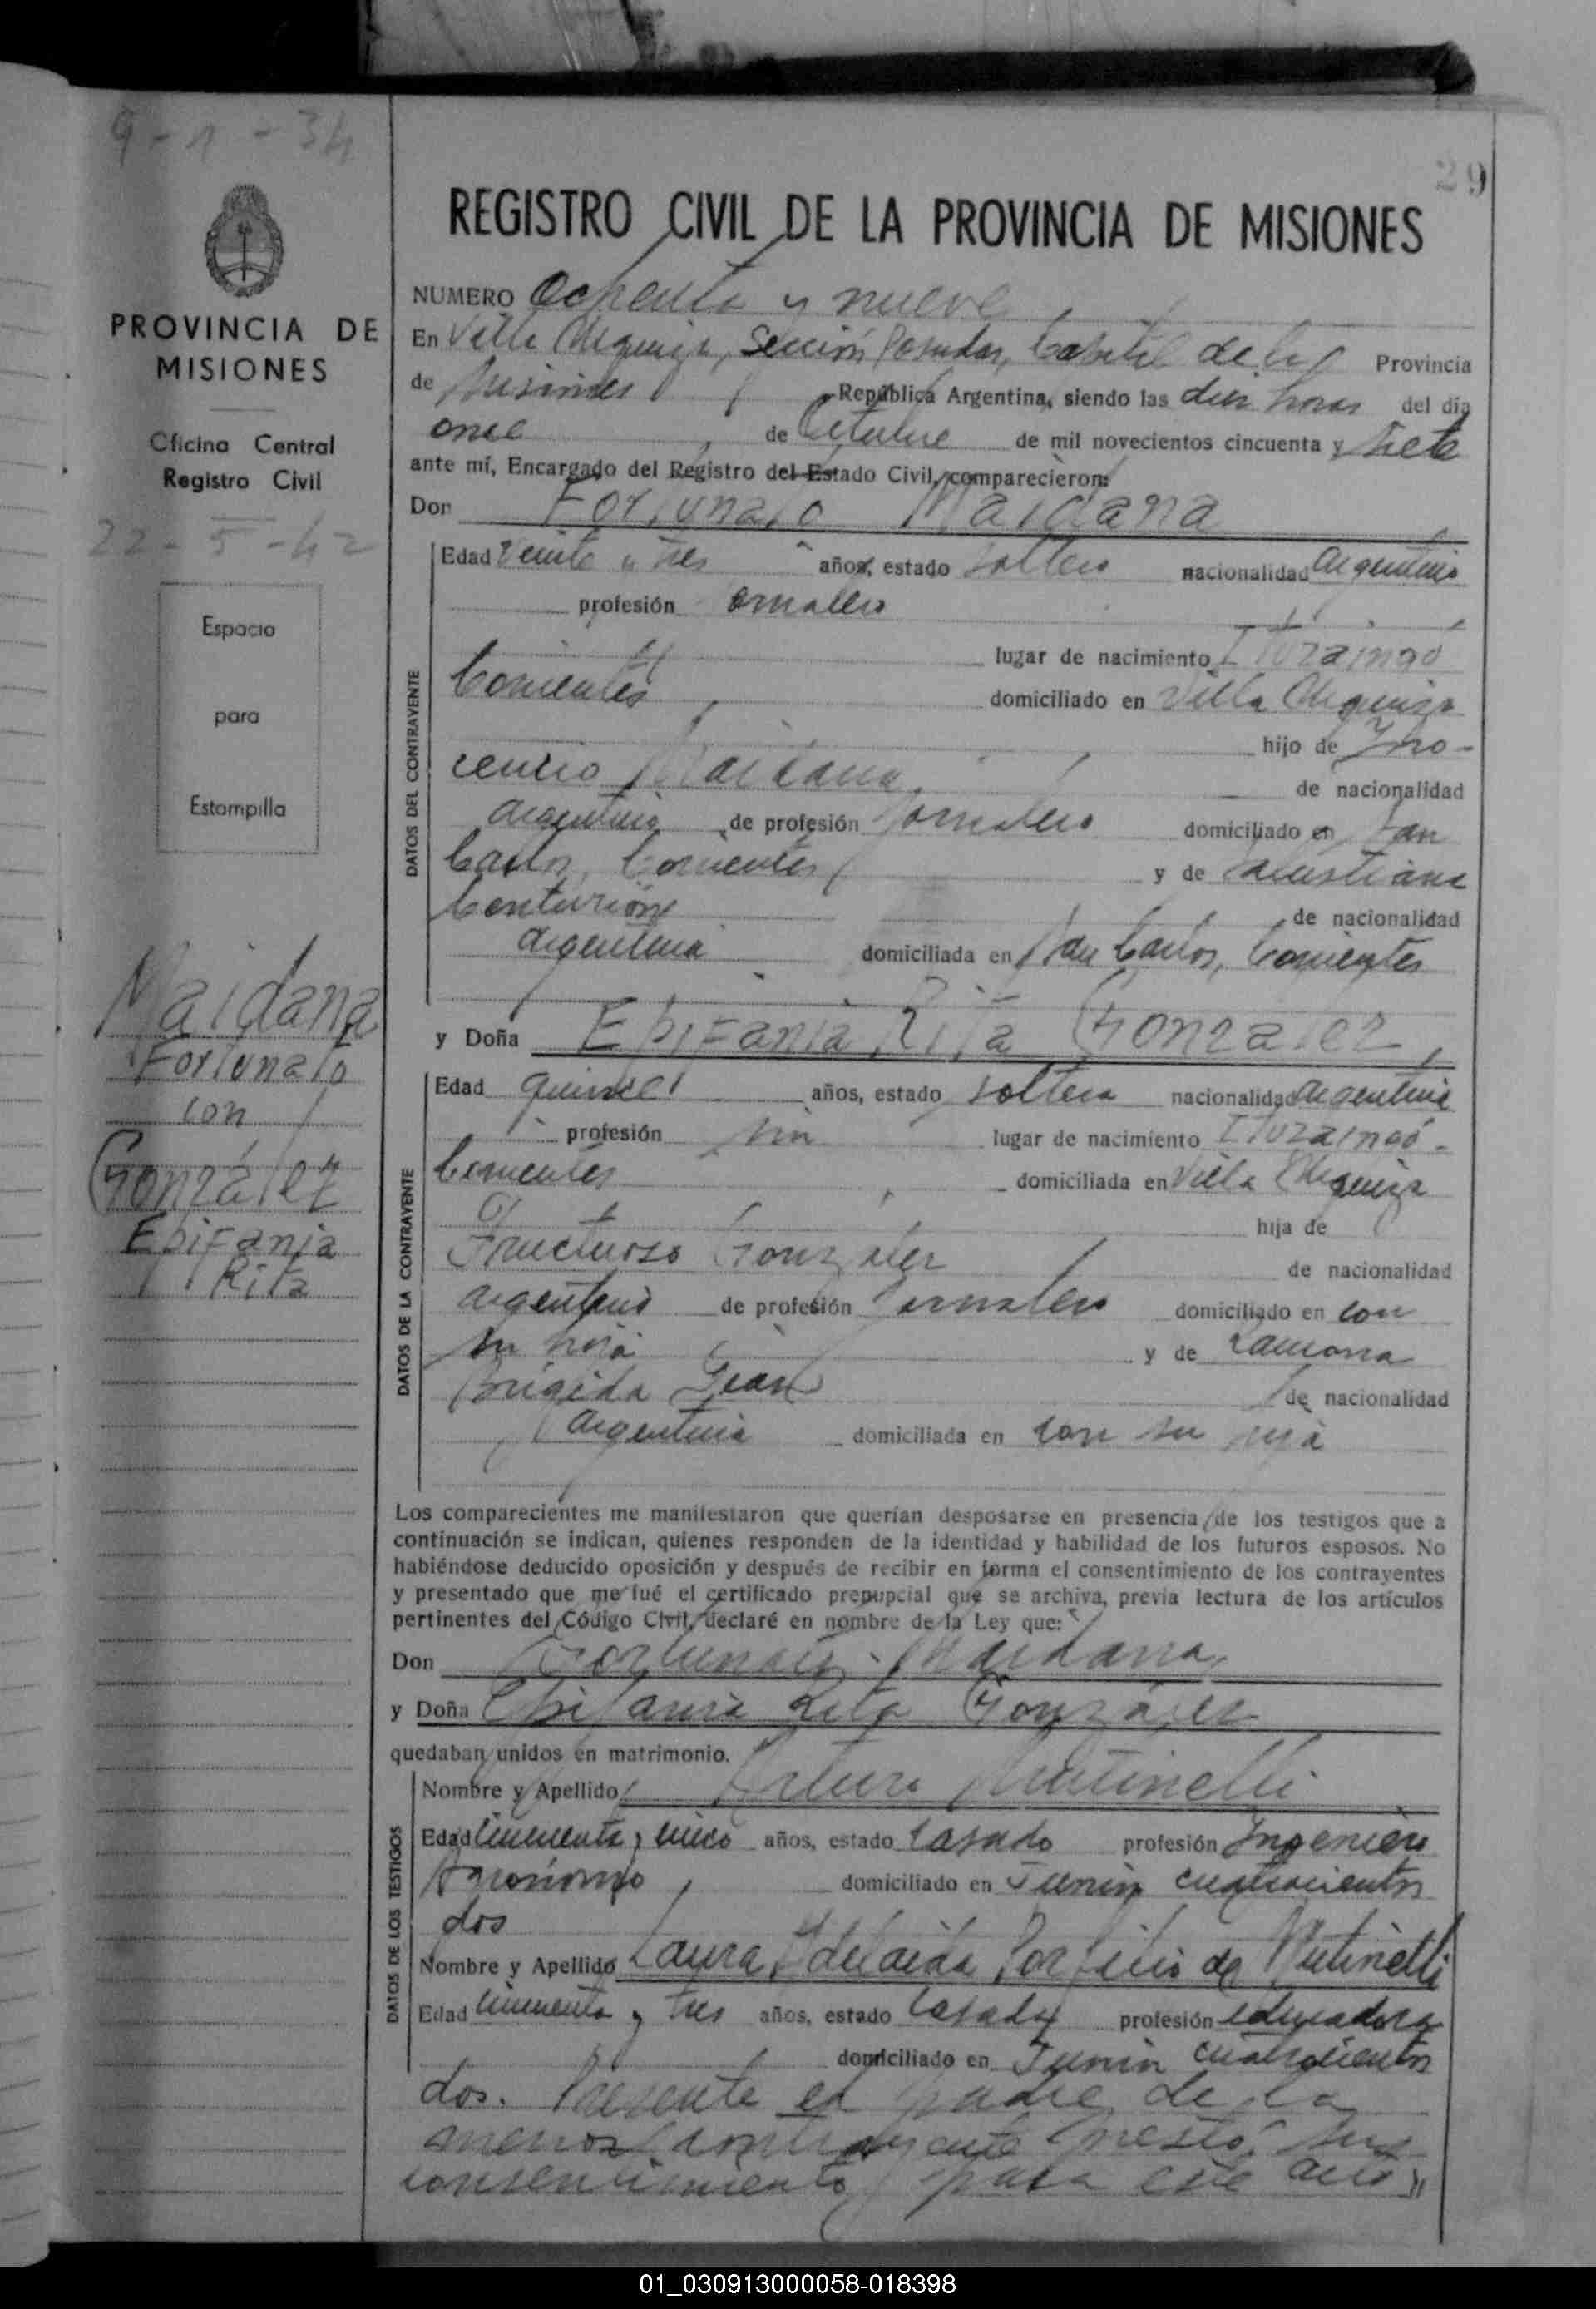 9-1-34
29
PROVINCIA DE
MISIONES
Oficina Central
Registro Civil
22-5-42
Espacio
para
Estampilla
Maidana
Fortunato
con
González
Epifania
Rita
REGISTRO CIVIL DE LA PROVINCIA DE MISIONES
NUMERO Ochenta y nueve
En Villa Urquiza, Sección Posadas, Capital de la Provincia
de Misiones República Argentina, siendo las diez horas del día
once de Octubre de mil novecientos cincuenta y siete
ante mí, Encargado del Registro del Estado Civil, comparecieron:
Don Fortunato Maidana
DATOS DEL CONTRAYENTE
Edad veinte y tres años, estado soltero nacionalidad argentino
profesión jornalero
lugar de nacimiento Ituzaingó
Corrientes, domiciliado en Villa Urquiza
hijo de Ino-
cencio Maidana, de nacionalidad
argentino de profesión jornalero domiciliado en San
Carlos, Corrientes y de Salustiana
Centurión de nacionalidad
argentina domiciliada en San Carlos, Corrientes
y Doña Epifania Rita Gonzalez,
DATOS DE LA CONTRAYENTE
Edad quince años, estado soltera nacionalidad argentina
profesión sin lugar de nacimiento Ituzaingó-
Corrientes, domiciliada en Villa Urquiza
hija de
Fructuoso González de nacionalidad
argentino de profesión jornalero domiciliado en con
su hija y de Ramona
Brígida de nacionalidad
argentina domiciliada en con su hija
Los comparecientes me manifestaron que querían desposarse en presencia de los testigos que a
continuación se indican, quienes responden de la identidad y habilidad de los futuros esposos. No
habiéndose deducido oposición y después de recibir en forma el consentimiento de los contrayentes
y presentado que me fué el certificado prenupcial que se archiva, previa lectura de los artículos
pertinentes del Código Civil, declaré en nombre de la Ley que:
Don Fortunato Maidana,
y Doña Epifania Rita González
quedaban unidos en matrimonio.
DATOS DE LOS TESTIGOS
Nombre y Apellido Arturo Mutinelli
Edad cincuenta y cinco años, estado casado profesión Ingeniero
Agrónomo, domiciliado en Junín cuatrocientos
dos
Nombre y Apellido Laura Adelaida Porfilio de Mutinelli
Edad cincuenta y tres años, estado casada profesión educadora
domiciliado en Junín cuatrocientos
dos. Presente el padre de la
menor contrayente prestó su
consentimiento para este acto,,
01_030913000058-018398